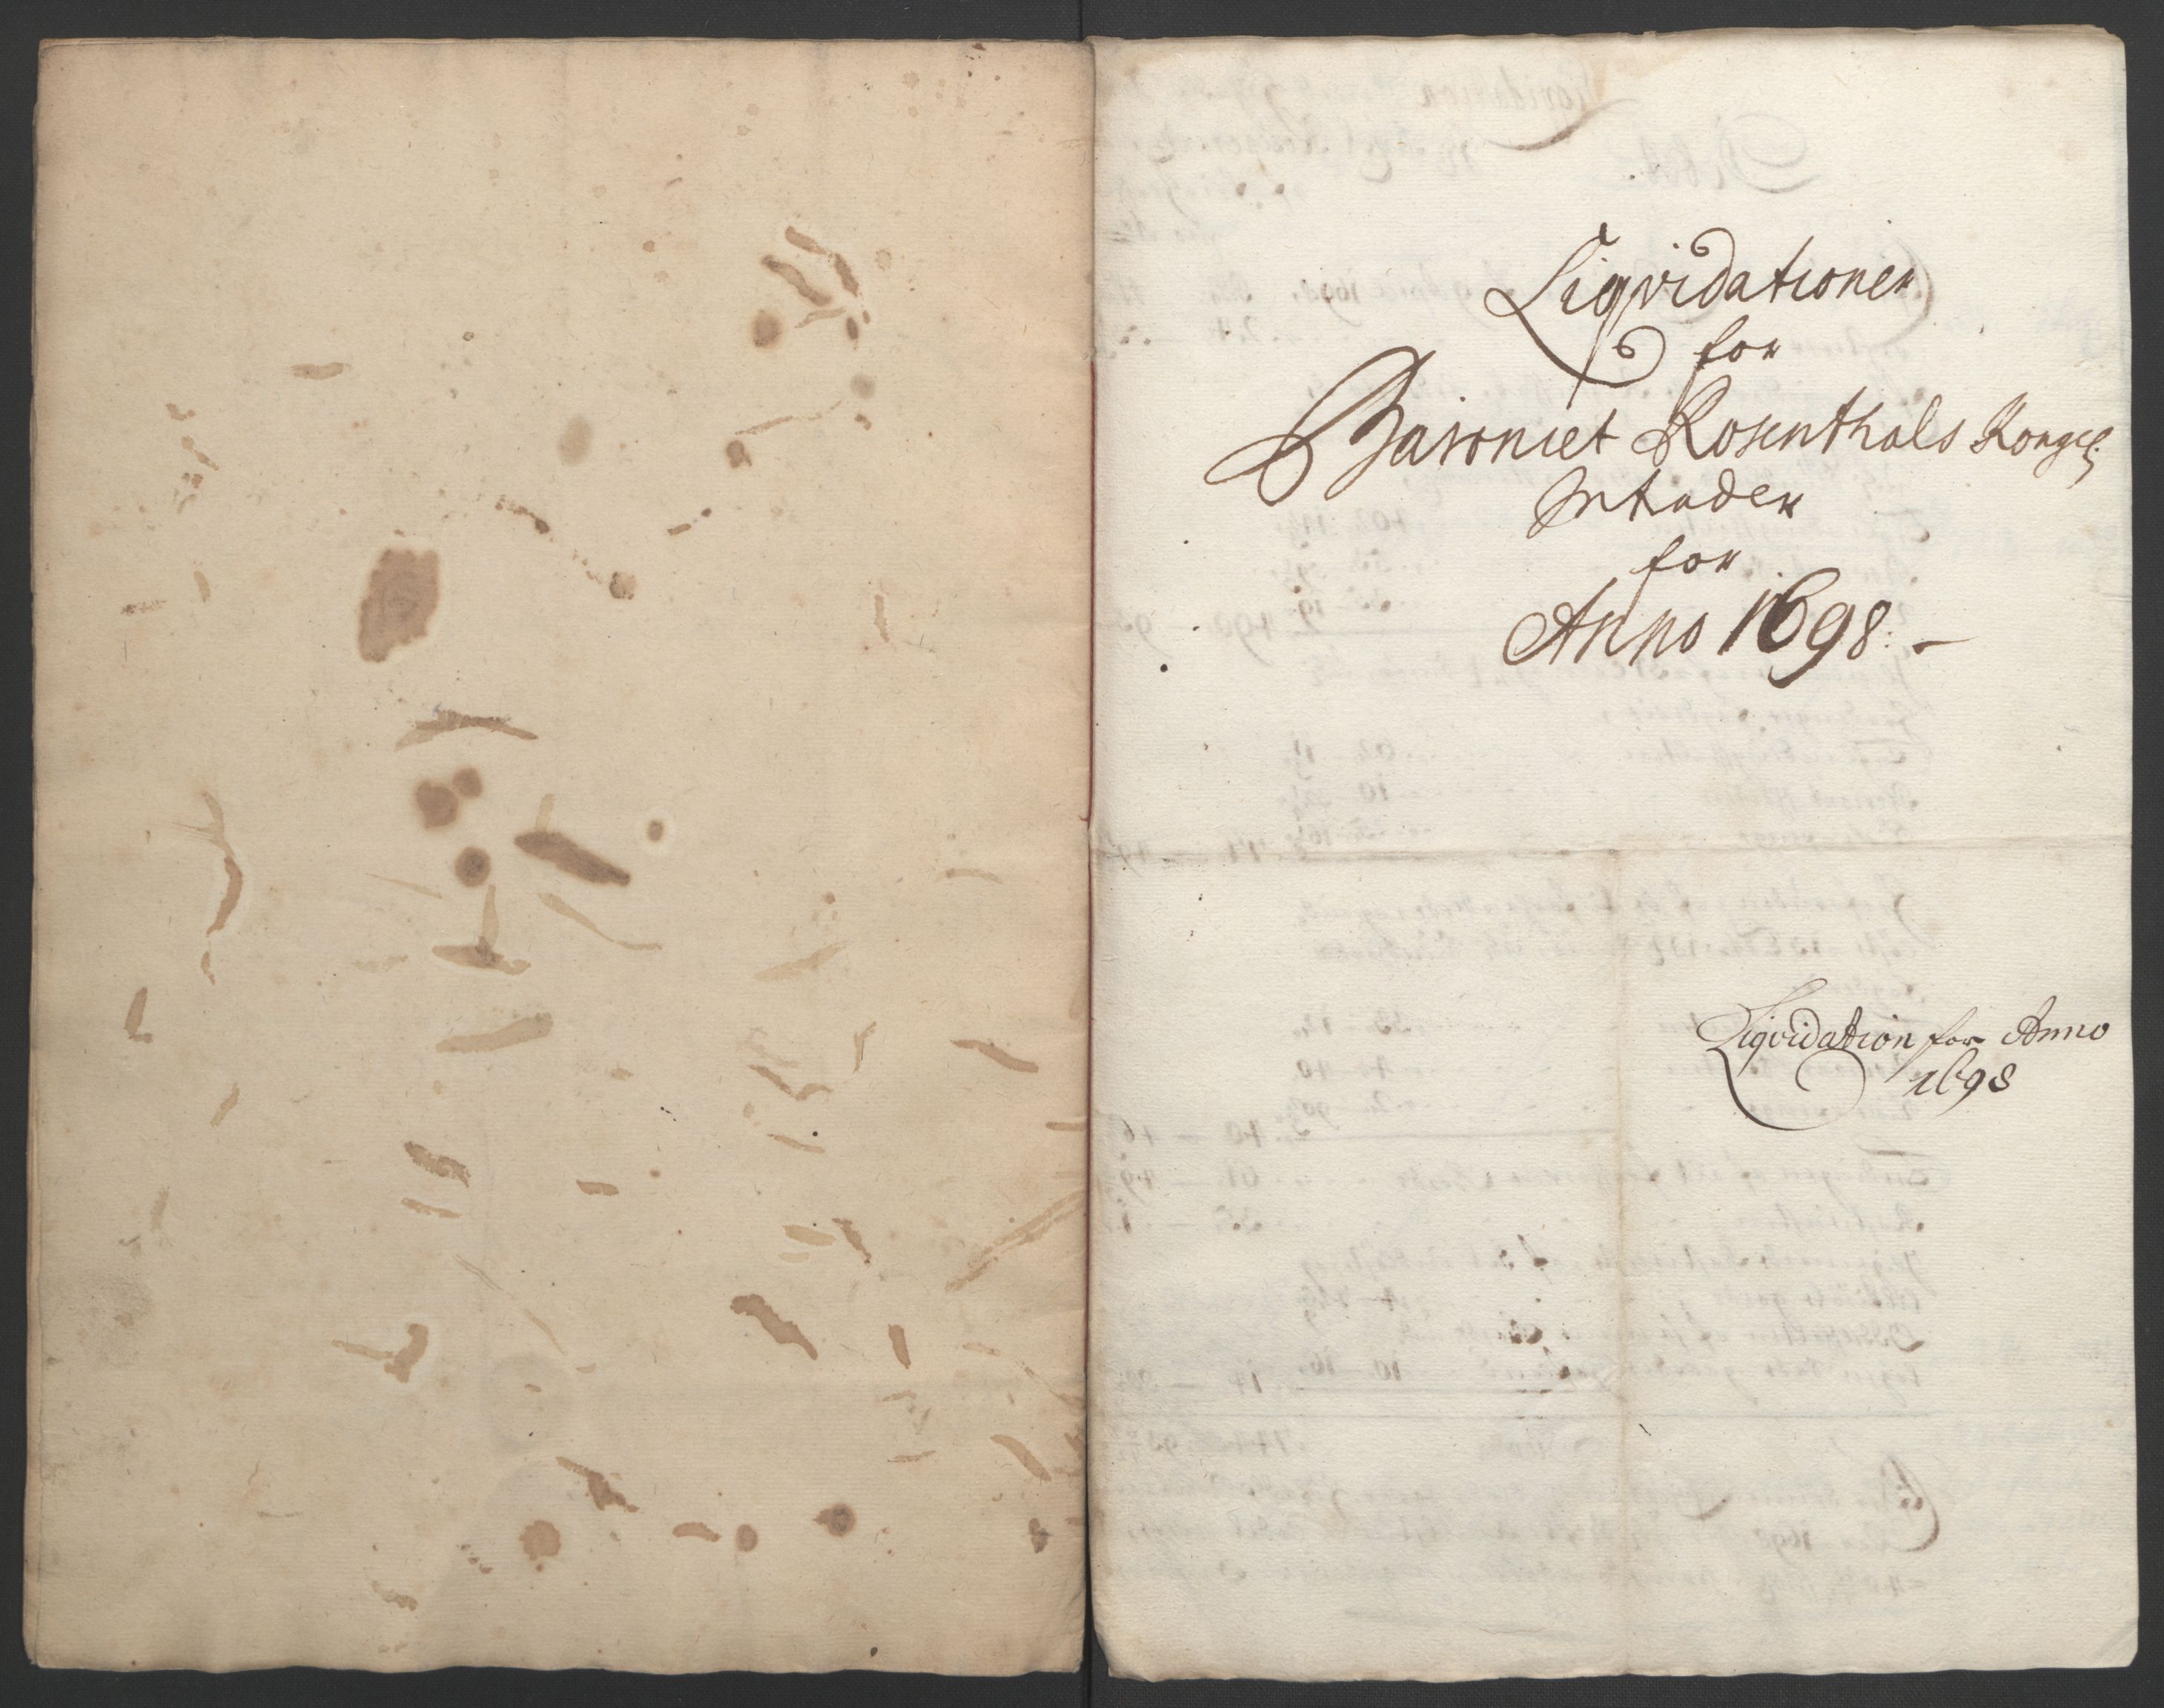 Liqvidationer
for
Baroniet Rosenthals Kongel:
Intrader
for
Anno 1698. –
Liqvidation for Anno
1698